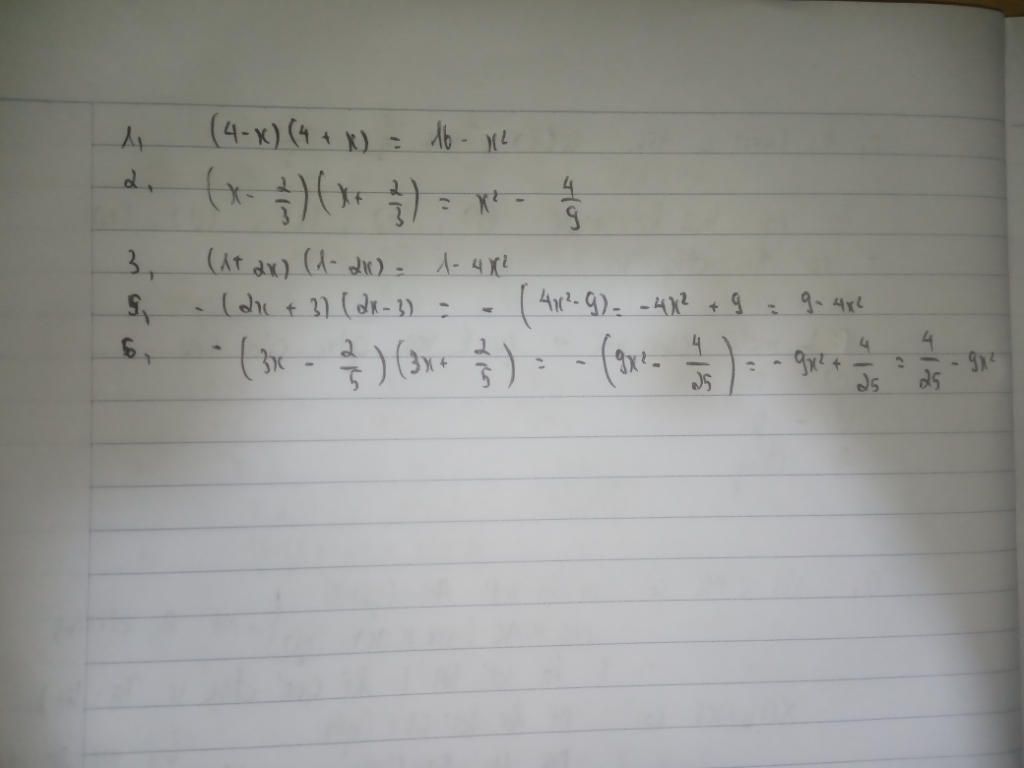 1, (4-x)(4+x) = 16 - x²
2, (x - 2/3)(x + 2/3) = x² - 4/9
3, (1+2x)(1-2x) = 1 - 4x²
5, - (2x + 3)(2x - 3) = - (4x² - 9) = -4x² + 9 = 9 - 4x²
6, - (3x - 2/5)(3x + 2/5) = - (9x² - 4/25) = - 9x² + 4/25 = 4/25 - 9x²